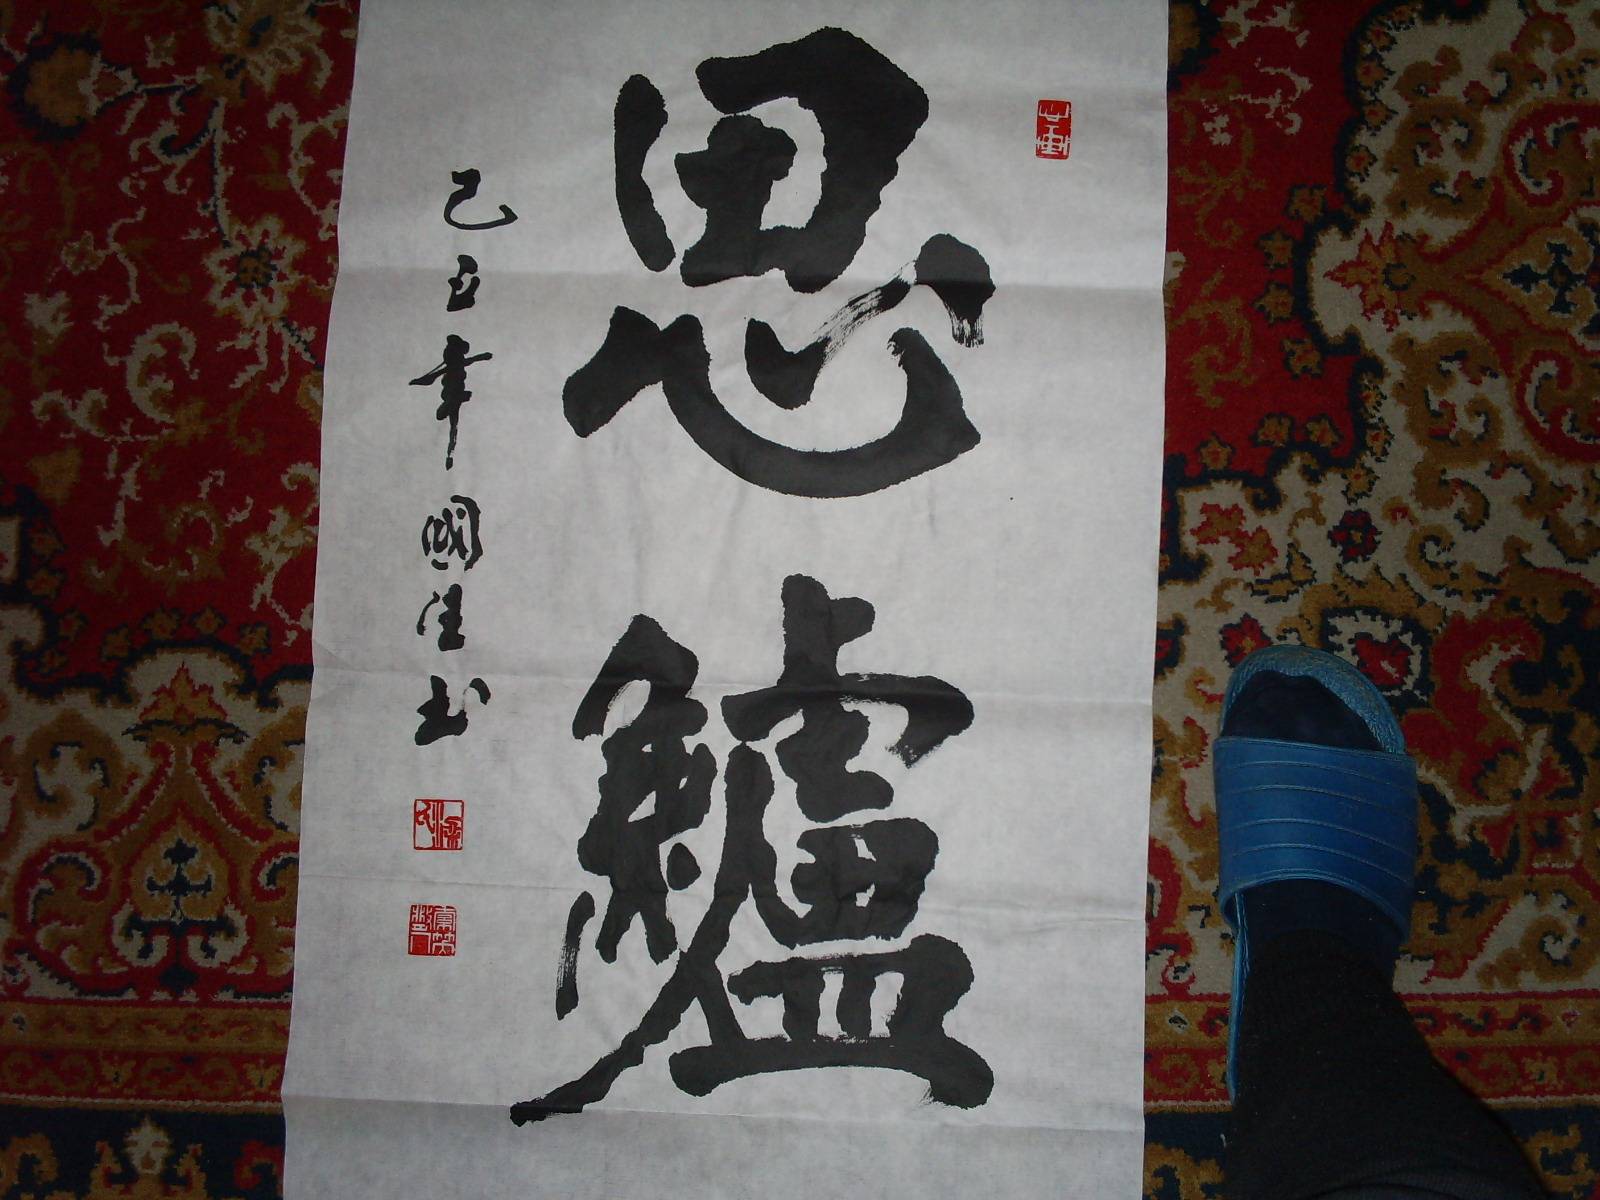 思鱸
己丑年國佳书